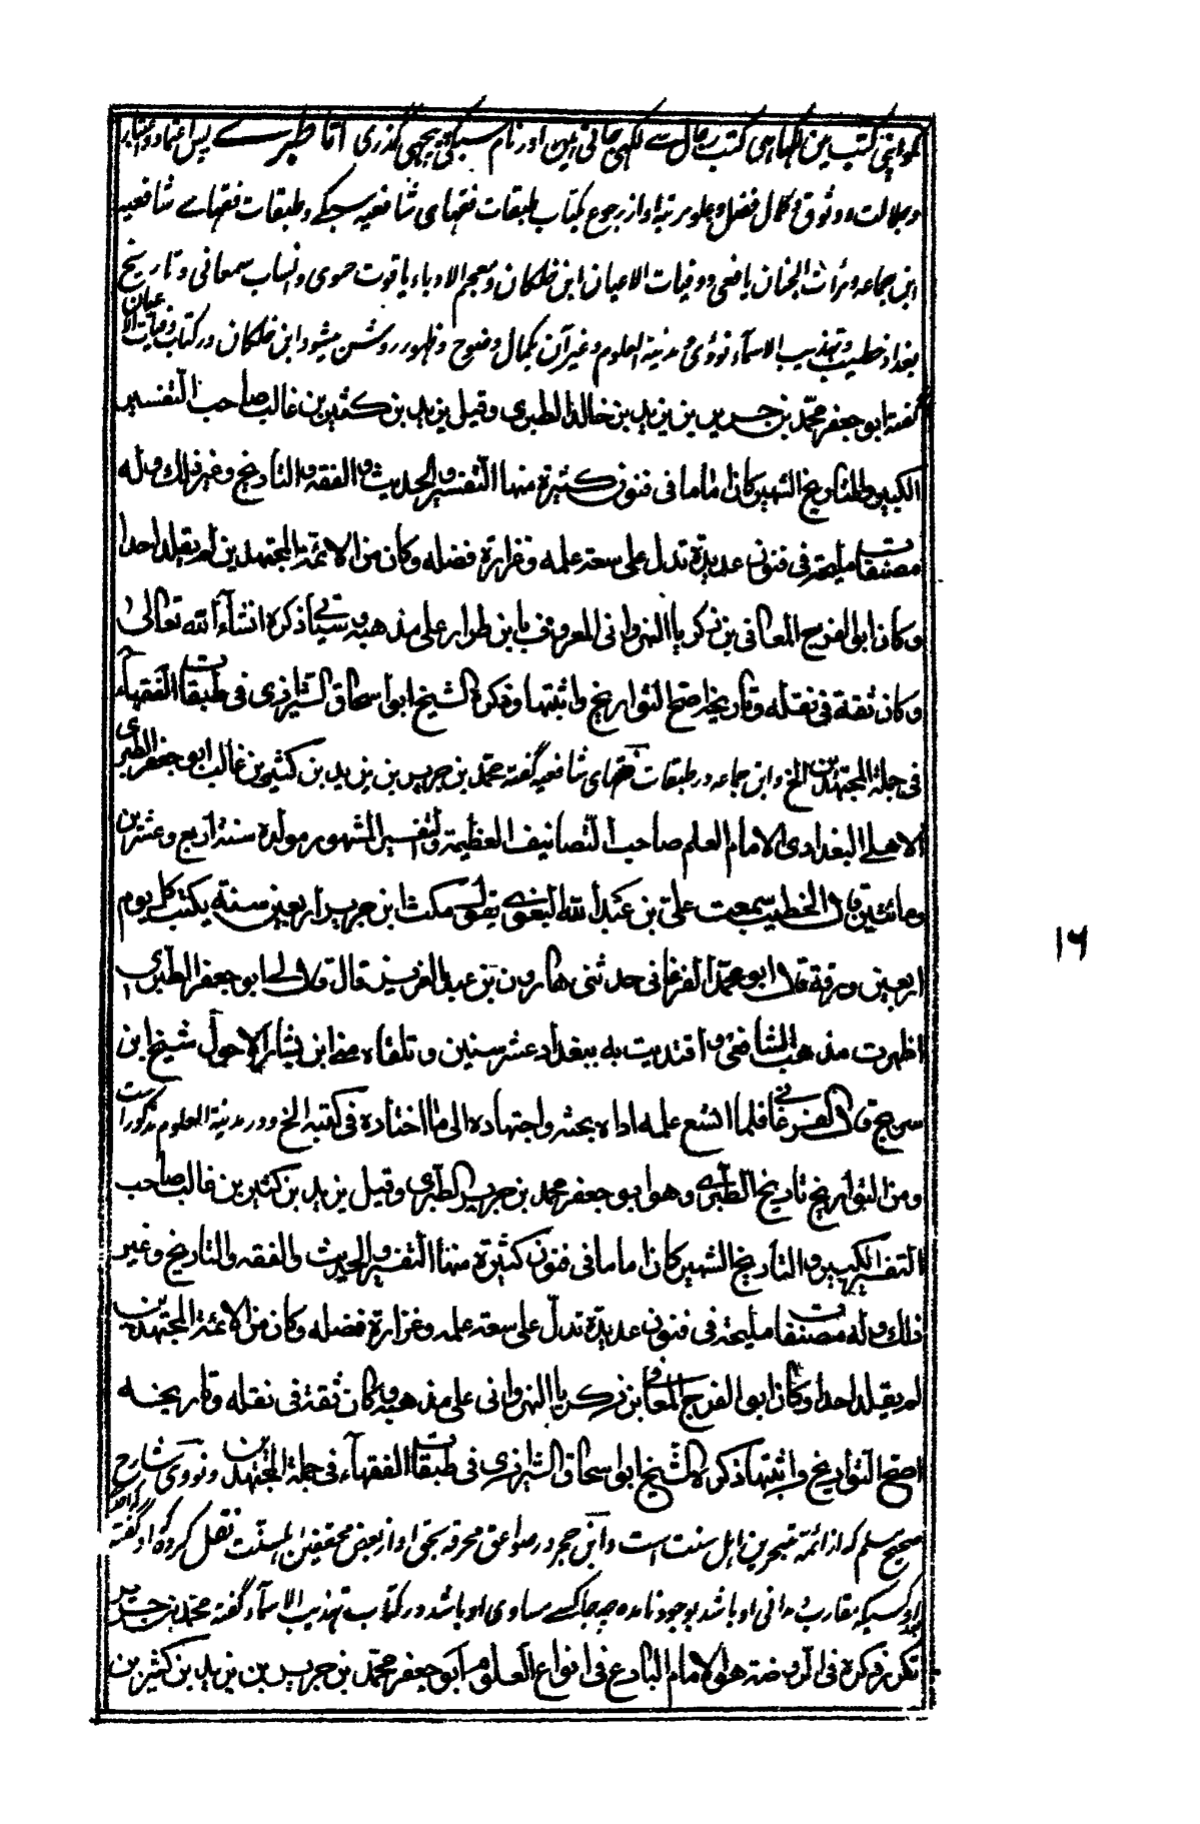 کو اپنی کتب مین لکھا ہی کتب رجال سے لکھی جاتی ہین اور نام سبکی پیچھی گذری اما طبرے پس اعتماد و اعتبار
و جلالت و وثوق و کمال فضل و علو مرتبه او از رجوع بکتاب طبقات فقهای شافعیه سبکے و طبقات فقهاے شافعیه
ابن جماعه و مرأت الجنان یافعی و وفیات الاعیان ابن خلکان و معجم الادباء یاقوت حموی و انساب سمعانی و تاریخ
بغداد خطیب و تهذیب الاسماء نووی و مدینة العلوم و غیر آن بکمال وضوح و ظهور روشن میشود ابن خلکان در کتاب وفیات الاعیان
گفته ابو جعفر محمّد بن جریر بن یزید بن خالد الطبری وقیل یزید بن کثیر بن غالب صاحب التفسیر
الکبیر والتاریخ الشهیر کان اماما فی فنون کثیرة منها التفسیر والحدیث والفقه والتاریخ وغیر ذلک وله
مصنفات ملیحة فی فنون عدیدة تدل علی سعة علمه وغزارة فضله وکان من الائمة المجتهدین لم یقلد احدا
وکان ابو الفرج المعافی بن زکریا النهروانی المعروف بابن طرار علی مذهبه وسیأتی ذکره انشاء الله تعالی
وکان ثقة فی نقله وتاریخه اصح التواریخ واثبتها وذکره الشیخ ابو اسحاق الشیرازی فی طبقات الفقهاء
فی جملة المجتهدین الخ و ابن جماعه در طبقات فقهای شافعیه گفته محمد بن جریر بن یزید بن کثیر بن غالب ابو جعفر الطبری
الاملے البغدادی الامام العلم صاحب التصانیف العظیمة والتفسیر المشهور مولده سنة اربع وعشرین
ومائتین قال الخطیب سمعت علیّ بن عبد الله اللغوی یقول مکث ابن جریر اربعین سنة یکتب کل یوم
اربعین ورقة قال ابو محمّد الفرغانی حدثنی هارون بن عبد العزیز قال قال لے ابو جعفر الطبری
اظهرت مذهب الشافعی واقتدیت به ببغداد عشر سنین وتلقاه منے ابن بشار الاحول شیخ ابن
سریج قال الفرغانی فلما اتسع علمه اداه بحثه واجتهاده الی ما اختاره فی کتبه الخ و در مدینة العلوم مذکور است
ومن التواریخ تاریخ الطبرے وهو ابو جعفر محمد بن جریر الطبری وقیل یزید بن کثیر بن غالب صاحب
التفسیر الکبیر والتاریخ الشهیر کان اماما فی فنون کثیرة منها التفسیر والحدیث والفقه والتاریخ وغیر
ذلک وله مصنفات ملیحة فی فنون عدیدة تدلّ علی سعة علمه وغزارة فضله وکان من الائمة المجتهدین
لم یقلد احدا وکان ابو الفرج المعافی بن زکریا النهروانی علی مذهبه وکان ثقة فی نقله وتاریخه
اصح التواریخ واثبتها ذکره الشیخ ابو اسحاق الشیرازی فی طبقات الفقهاء فی جملة المجتهدین و نووی شارح
صحیح مسلم که از ائمه متبحرین اهل سنت است و ابن حجر در صواعق محرقه بحق او از بعض محققین اهلسنّت نقل کرده که او گفته
که کسیکه مقارب و مدانی او باشد بوجود نامده چه جاکسے مساوی او باشد در کتاب تهذیب الاسماء گفته محمّد بن جریر
تکرر ذکره فی الروضة هو الامام البارع فی انواع العلوم ابو جعفر محمّد بن جریر بن یزید بن کثیر بن
۱۶